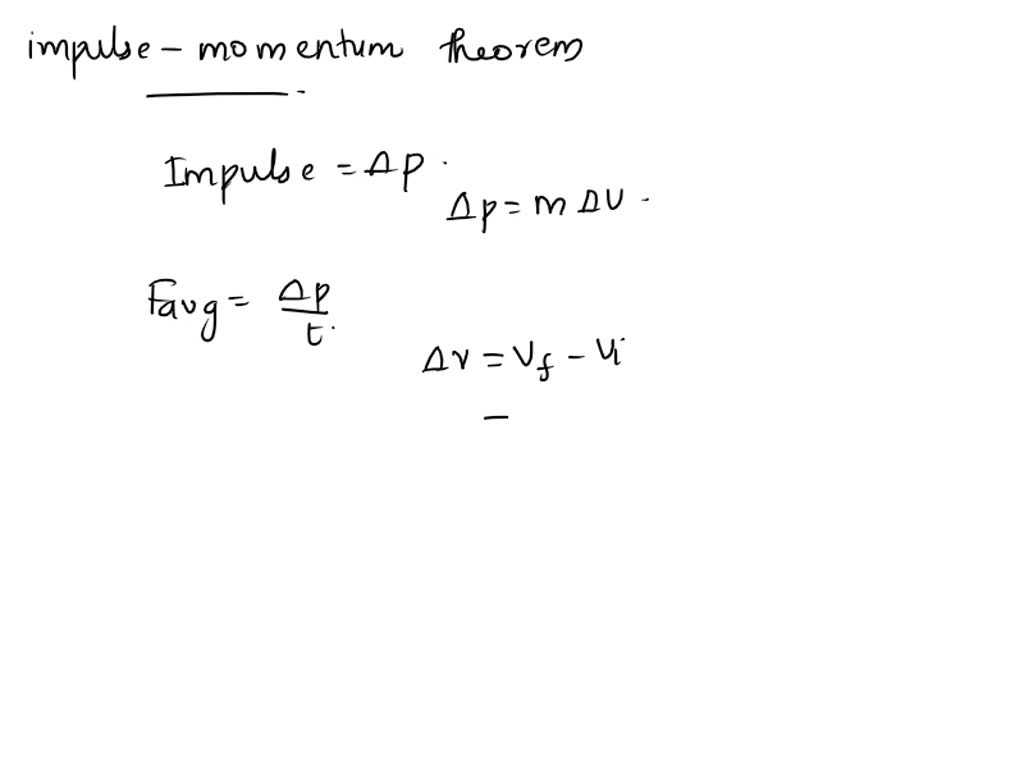 impulse - momentum theorem
Impulse = Δp.
Δp = m Δv.
Favg = Δp/t.
Δv = Vf - Vi